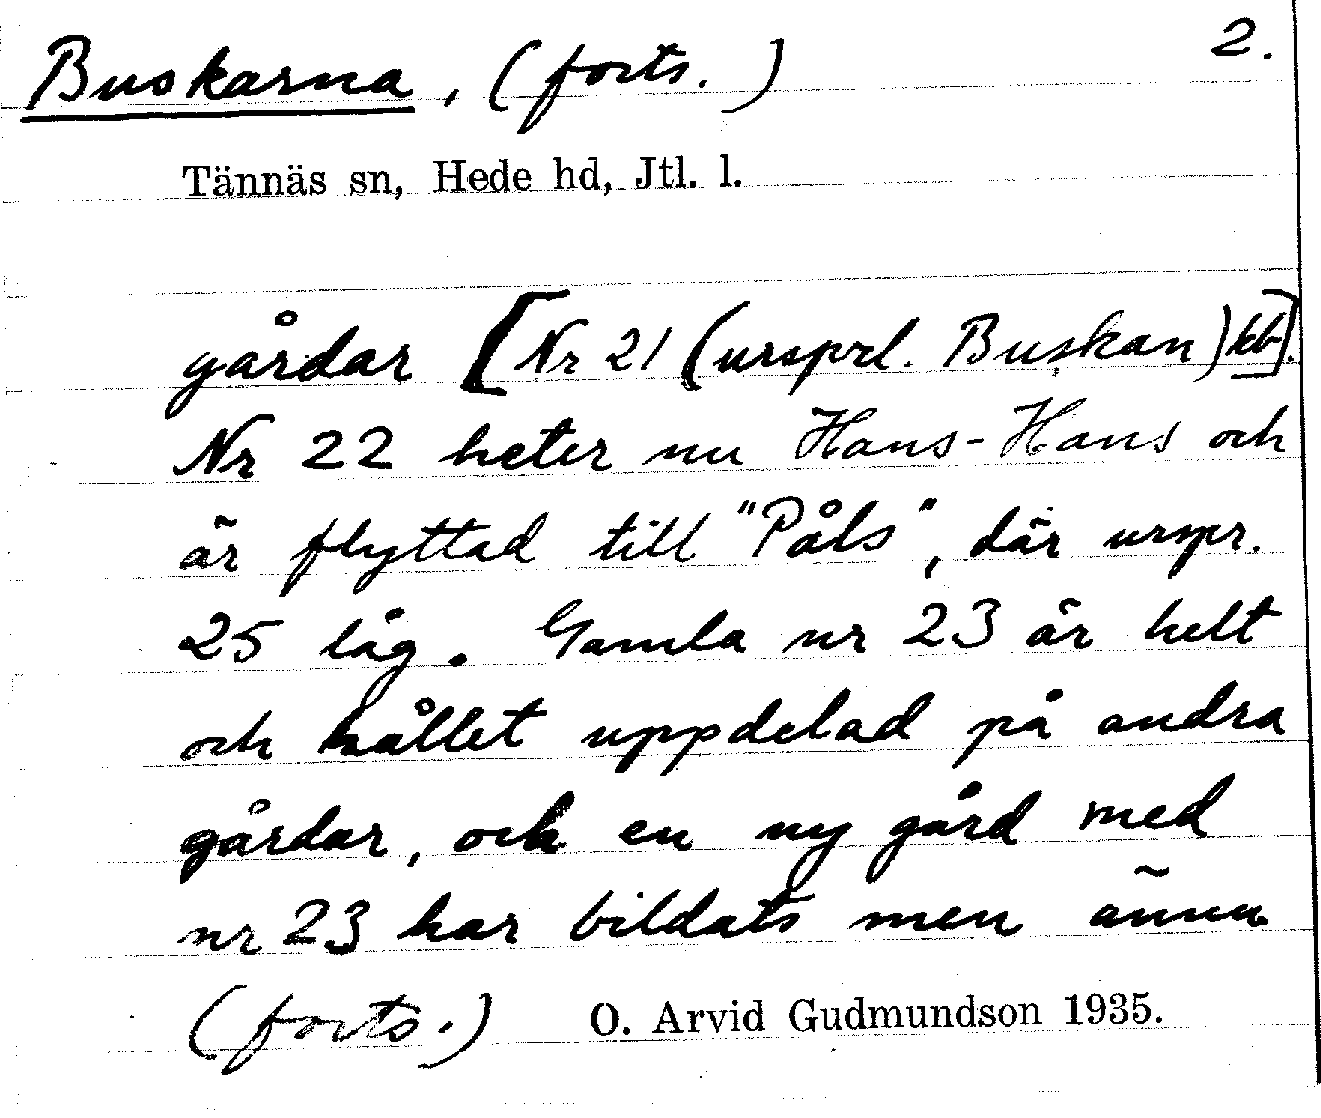 Buskarna, (forts.) 2.
Tännäs sn, Hede hd, Jtl. l.
gårdar [Nr 21 (ursprl. Buskan) kb].
Nr 22 heter nu Hans-Hans och
är flyttad till "Påls", där urspr.
25 låg. Gamla nr 23 är helt
och hållet uppdelad på andra
gårdar, och en ny gård med
nr 23 har bildats men ännu
(forts.) O. Arvid Gudmundson 1935.